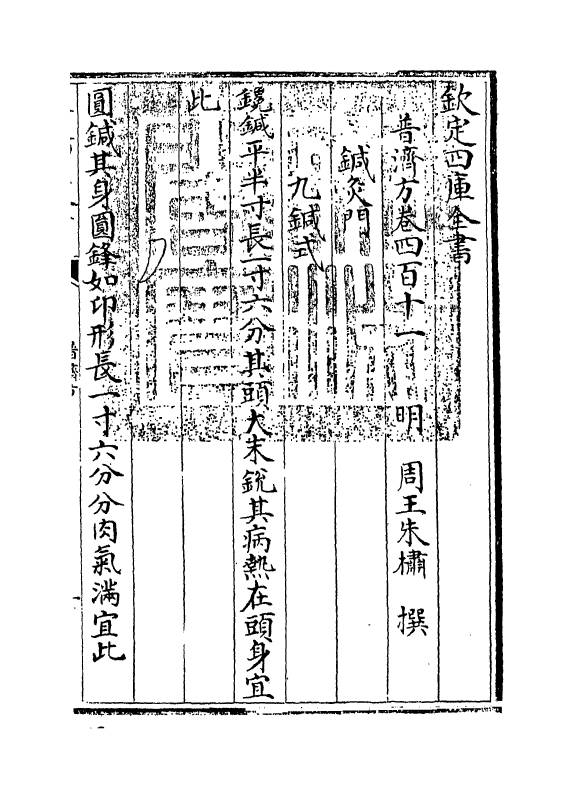 欽定四庫全書
普濟方卷四百十一
明 周王朱橚 撰
鍼灸門
九鍼式
鑱鍼平半寸長一寸六分其頭大末銳其病熱在頭身宜
此
圓鍼其身圓鋒如卵形長一寸六分分肉氣滿宜此
普濟方